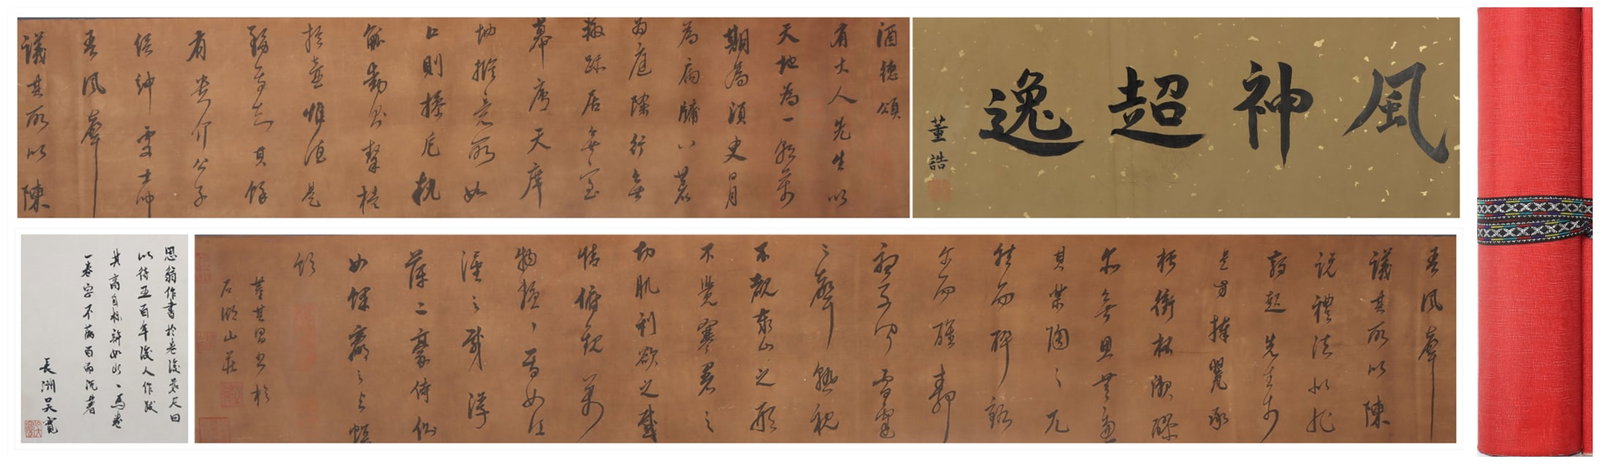 風神超逸
董誥
酒德頌
有大人先生以
天地為一朝萬
期為須臾日月
為扃牖八荒
為庭除行無
轍跡居無室
幕席天席
地縱意所如
止則操卮執
觚動則挈榼
提壺唯酒是
務焉知其餘
有貴介公子
縉紳處士聞
吾風聲
議其所以陳
吾風聲
議其所以陳
說禮法是非
鋒起先生於
是方捧甖承
槽銜杯漱醪
無思無慮
其樂陶陶兀
然而醉豁
尔而醒靜
聽不聞雷霆
之聲熟視
不覩泰山之形
不覺寒暑之
切肌利欲之感
情俯觀萬
物擾擾焉如江
漢之載浮
萍二豪侍側
如蜾蠃之與螟
蛉
董其昌書於
石湖山莊
思翁作書於老後
以待五百年後人作跋
其高自標許如此
一卷字不滿百而沉著
長洲吳寬